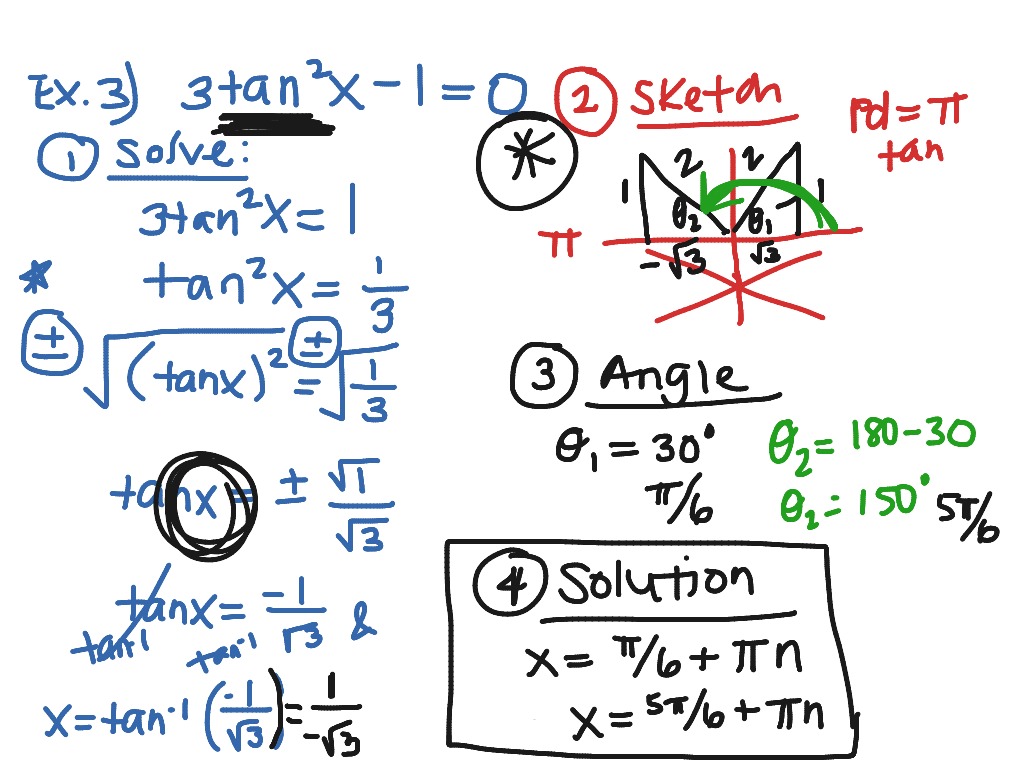 Ex. 3) 3tan²x − 1 = 0
① Solve:
3tan²x = 1
* tan²x = 1/3
± √(tanx)² = ± √1/3
tanx = ± √1/√3
tanx = -1/√3 &
tan⁻¹ tan⁻¹
x = tan⁻¹(-1/√3) = 1/-√3
*
② Sketch
Pd = π
tan
2 2
1 1
θ₂ θ₁
π
-√3 √3
③ Angle
θ₁ = 30°
π/6
θ₂ = 180 - 30
θ₂ = 150° 5π/6
④ Solution
x = π/6 + πn
x = 5π/6 + πn